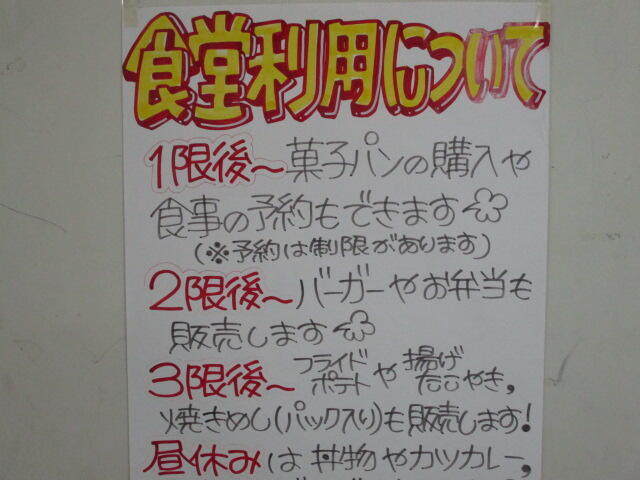 食堂利用について
1限後～菓子パンの購入や
食事の予約もできます
(※予約は制限があります)
2限後～バーガーやお弁当も
販売します
3限後～フライドポテトや揚げたこやき,
焼きめし(パック入り)も販売します!
昼休みは丼物やカツカレー,